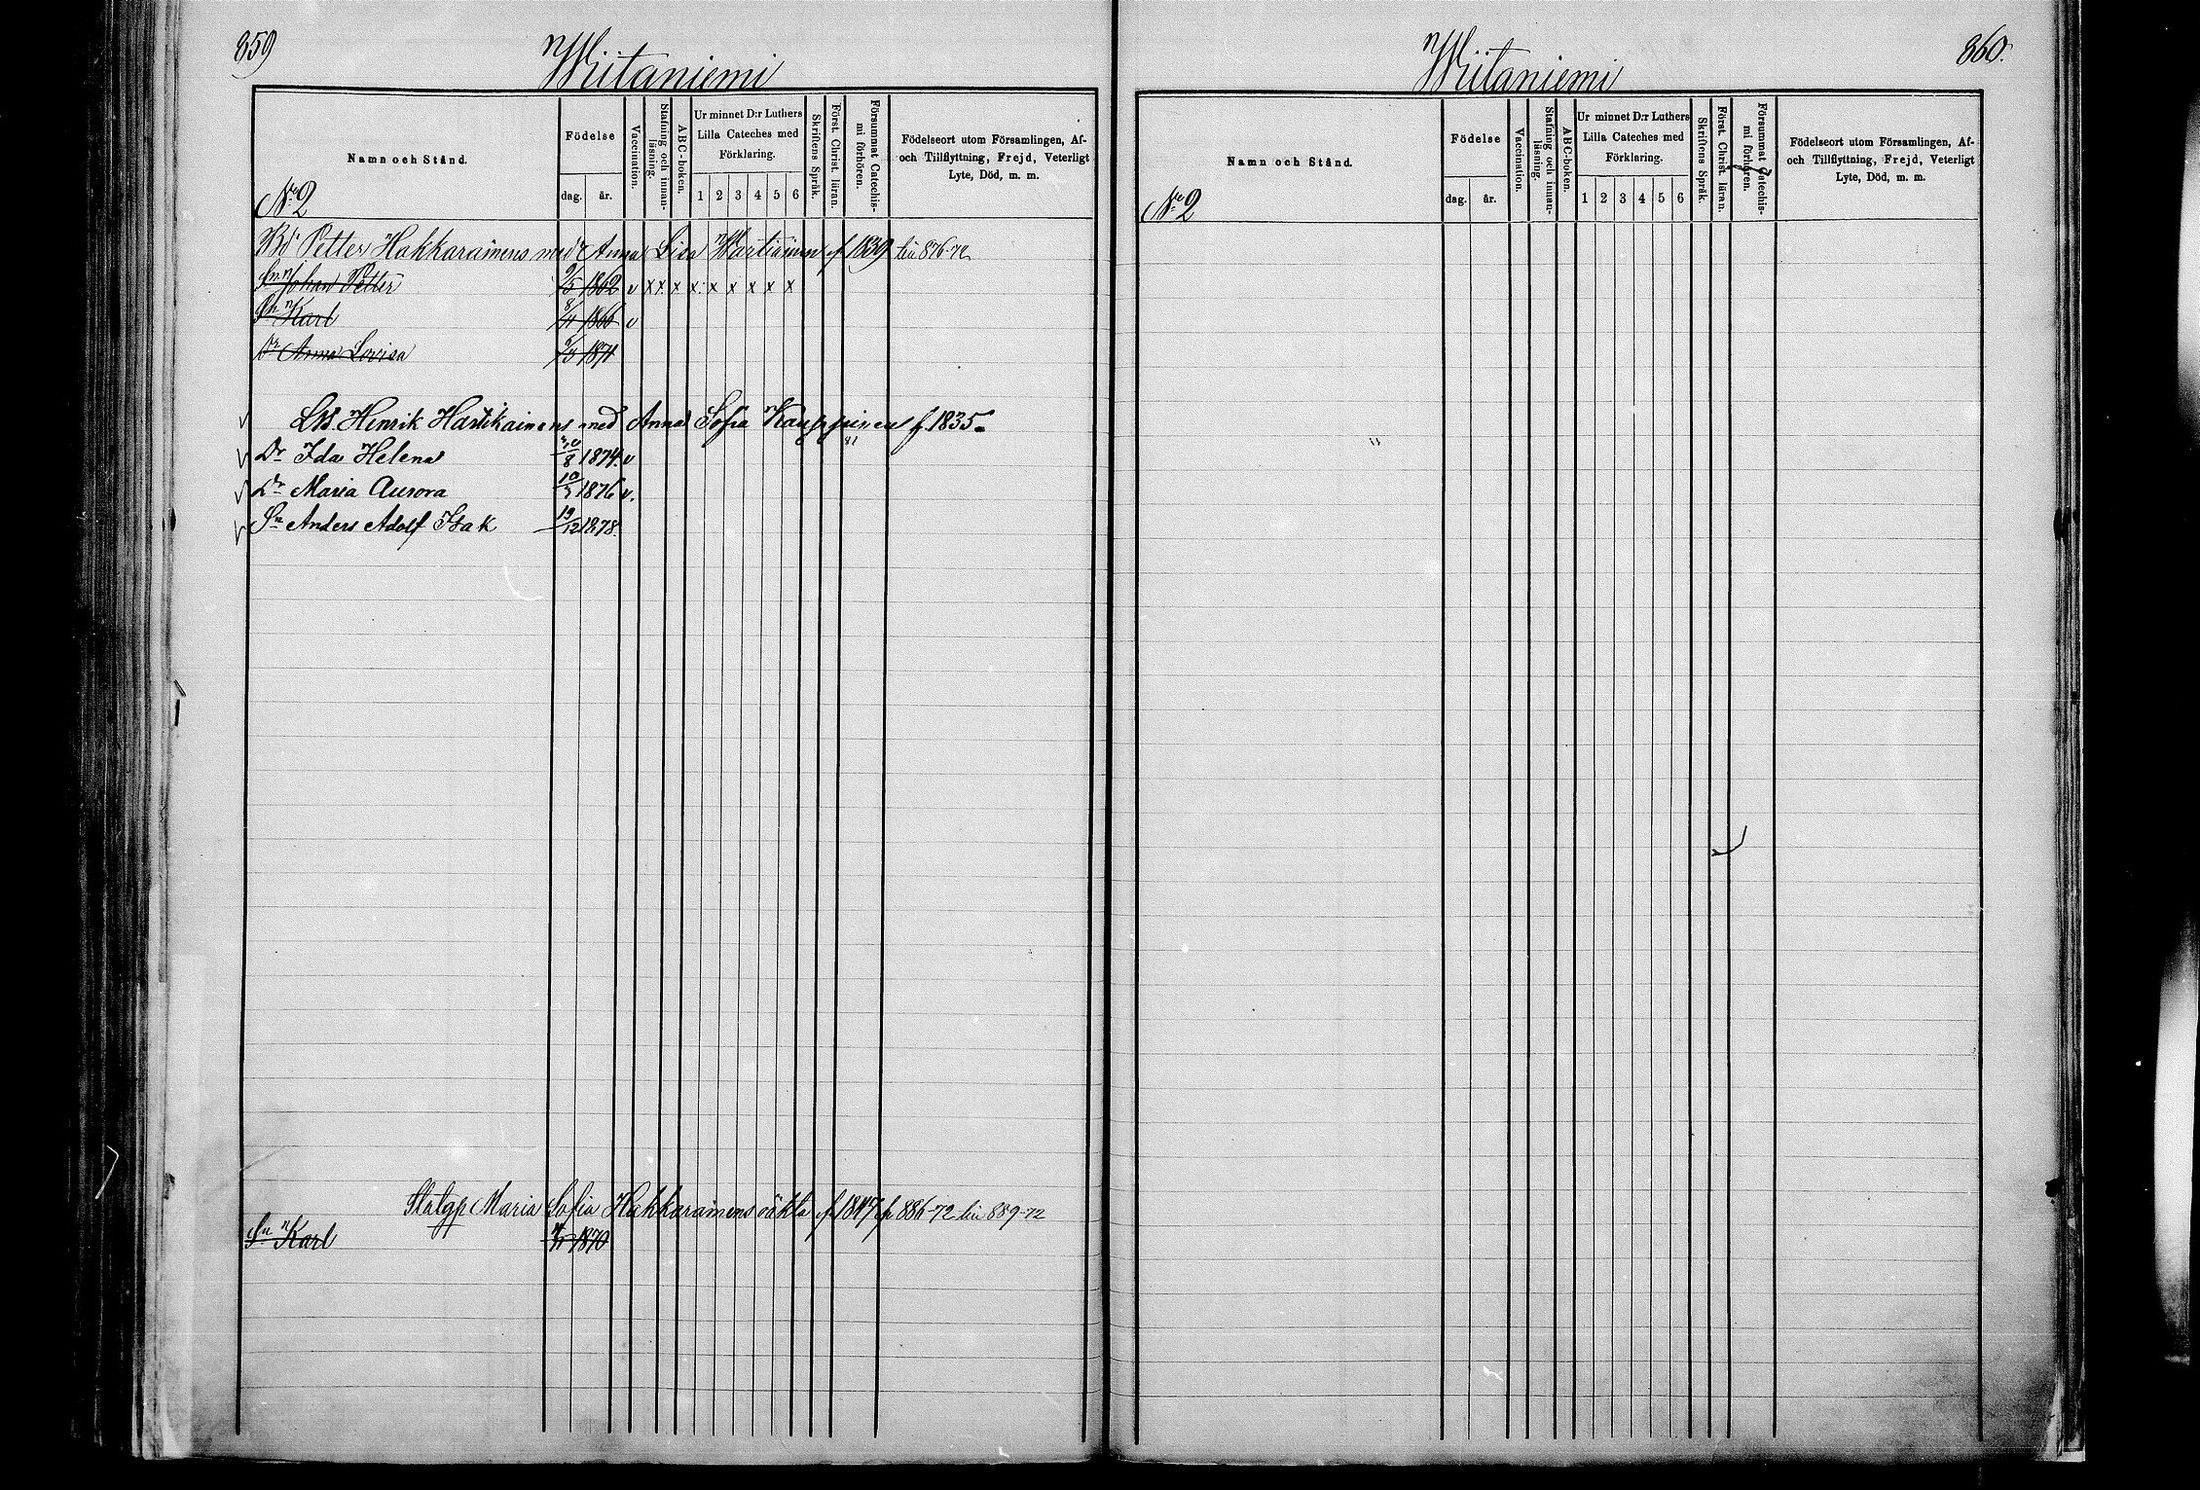 859
Wiitaniemi
Namn och Stånd.
Födelse
dag.
år.
Vaccination.
Stafning och innan-
läsning.
ABC-boken.
Ur minnet D:r Luthers
Lilla Cateches med
Förklaring.
1 2 3 4 5 6
Skriftens Språk.
Först. Christ. läran.
Försummat Catechis-
mi förhören.
Födelseort utom Församlingen, Af-
och Tillflyttning, Frejd, Veterligt
Lyte, Död, m. m.
No 2
Petter Hakkarainens med Anna Lisa f 1839 876-72
Sn Johan Petter 9/5 1862 v x x x x x x x x x
Sn Karl 8/11 1866 v
Dr Anna Lovisa 6/5 1871
Henrik Hartikainens med Anna Sofia Kauppinen f. 1835
81
Dr Ida Helena 30/8 1874. v
Dr Maria Aurora 10/3 1876 v.
Sn Anders Adolf Isak 19/12 1878.
Maria Sofia Hakkarainens oäkta f 1847 fr 886-72 889-72
Sn Karl 1870
860.
Wiitaniemi
Namn och Stånd.
Födelse
dag.
år.
Vaccination.
Stafning och innan-
läsning.
ABC-boken.
Ur minnet D:r Luthers
Lilla Cateches med
Förklaring.
1 2 3 4 5 6
Skriftens Språk.
Först. Christ. läran.
Försummat Catechis-
mi förhören.
Födelseort utom Församlingen, Af-
och Tillflyttning, Frejd, Veterligt
Lyte, Död, m. m.
No 2